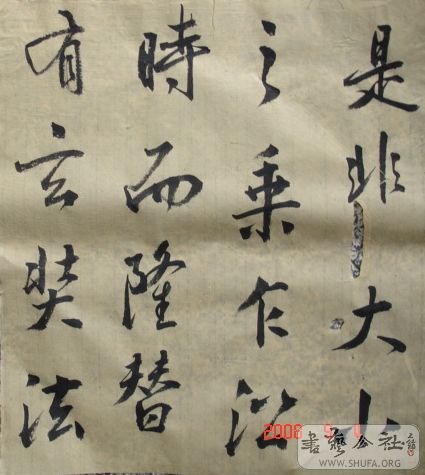 是非大小
之乘乍沿
時而隆替
有玄奘法
2008
書藝公社
WWW.SHUFA.ORG